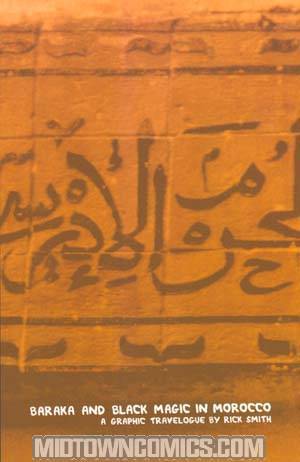 لحرم الإدريس
BARAKA AND BLACK MAGIC IN MOROCCO
A GRAPHIC TRAVELOGUE BY RICK SMITH
MIDTOWNCOMICS.COM